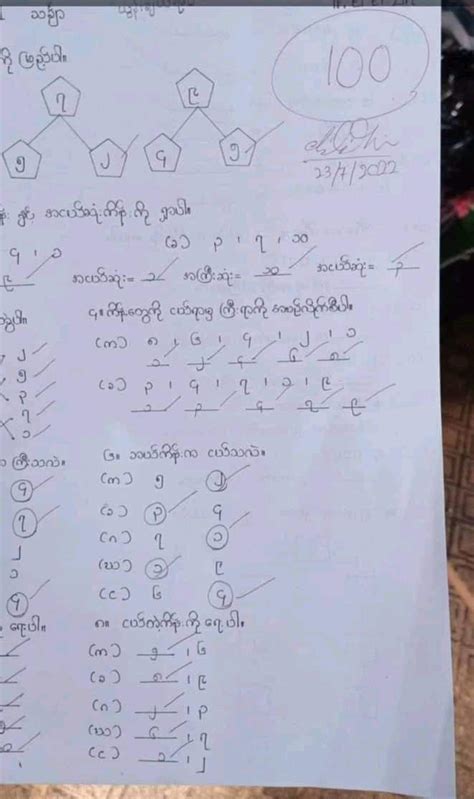 သင်္ချာ
ကို ဖြည့်ပါ။
100
၇ ၉
၅ ၂ ၄ ၅
23/7/2022
နှင့် အငယ်ဆုံးကိန်းကို ရှာပါ။
၄ ၊ ၁ (ခ) ၃ ၊ ၇ ၊ ၁၀
အငယ်ဆုံး= ၁ အကြီးဆုံး= ၁၀ အငယ်ဆုံး= ၃
၄။ ကိန်းတွေကို ငယ်ရာမှ ကြီးရာကို အစဉ်လိုက်စီပါ။
၂ (က) ၈ ၊ ၆ ၊ ၄ ၊ ၂ ၊ ၁
၅ ၁ ၂ ၄ ၆ ၈
၃ (ခ) ၃ ၊ ၄ ၊ ၇ ၊ ၁ ၊ ၉
၇ ၁ ၃ ၄ ၇ ၉
၁
ကြီးသလဲ။ ၆။ ဘယ်ကိန်းက ငယ်သလဲ။
၄ (က) ၅ ၂
၇ (ခ) ၃ ၄
၂ (ဂ) ၇ ၁
၁ (ဃ) ၁ ၉
၄ (င) ၆ ၄
ရေးပါ။ ၈။ ငယ်တဲ့ကိန်းကို ရေးပါ။
(က) ၅ ၊ ၆
(ခ) ၈ ၊ ၉
(ဂ) ၂ ၊ ၃
(ဃ) ၆ ၊ ၇
(င) ၁ ၊ ၂